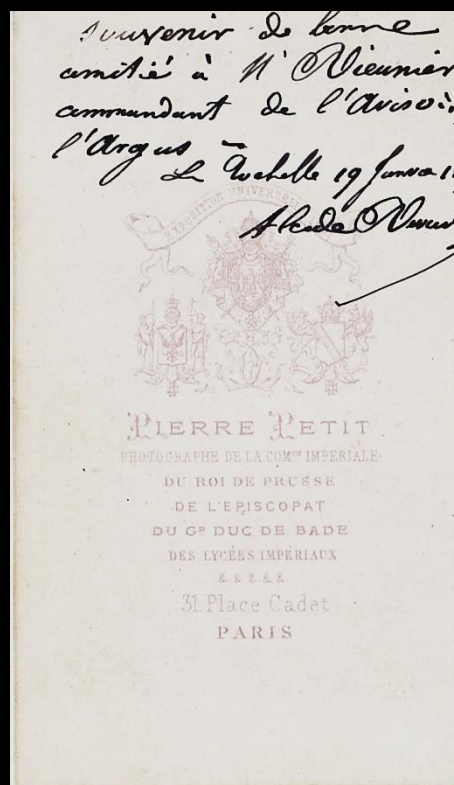 Souvenir de bonne
amitié à Mr Vieunier
commandant de l'Aviso
l'Argus -
La Rochelle 19 Janv
EXPOSITION UNIVERSELLE
Alcide
PIERRE PETIT
PHOTOGRAPHE DE LA COMon IMPÉRIALE
DU ROI DE PRUSSE
DE L'EPISCOPAT
DU GD DUC DE BADE
DES LYCÉES IMPÉRIAUX
& & & & &
31. Place Cadet
PARIS